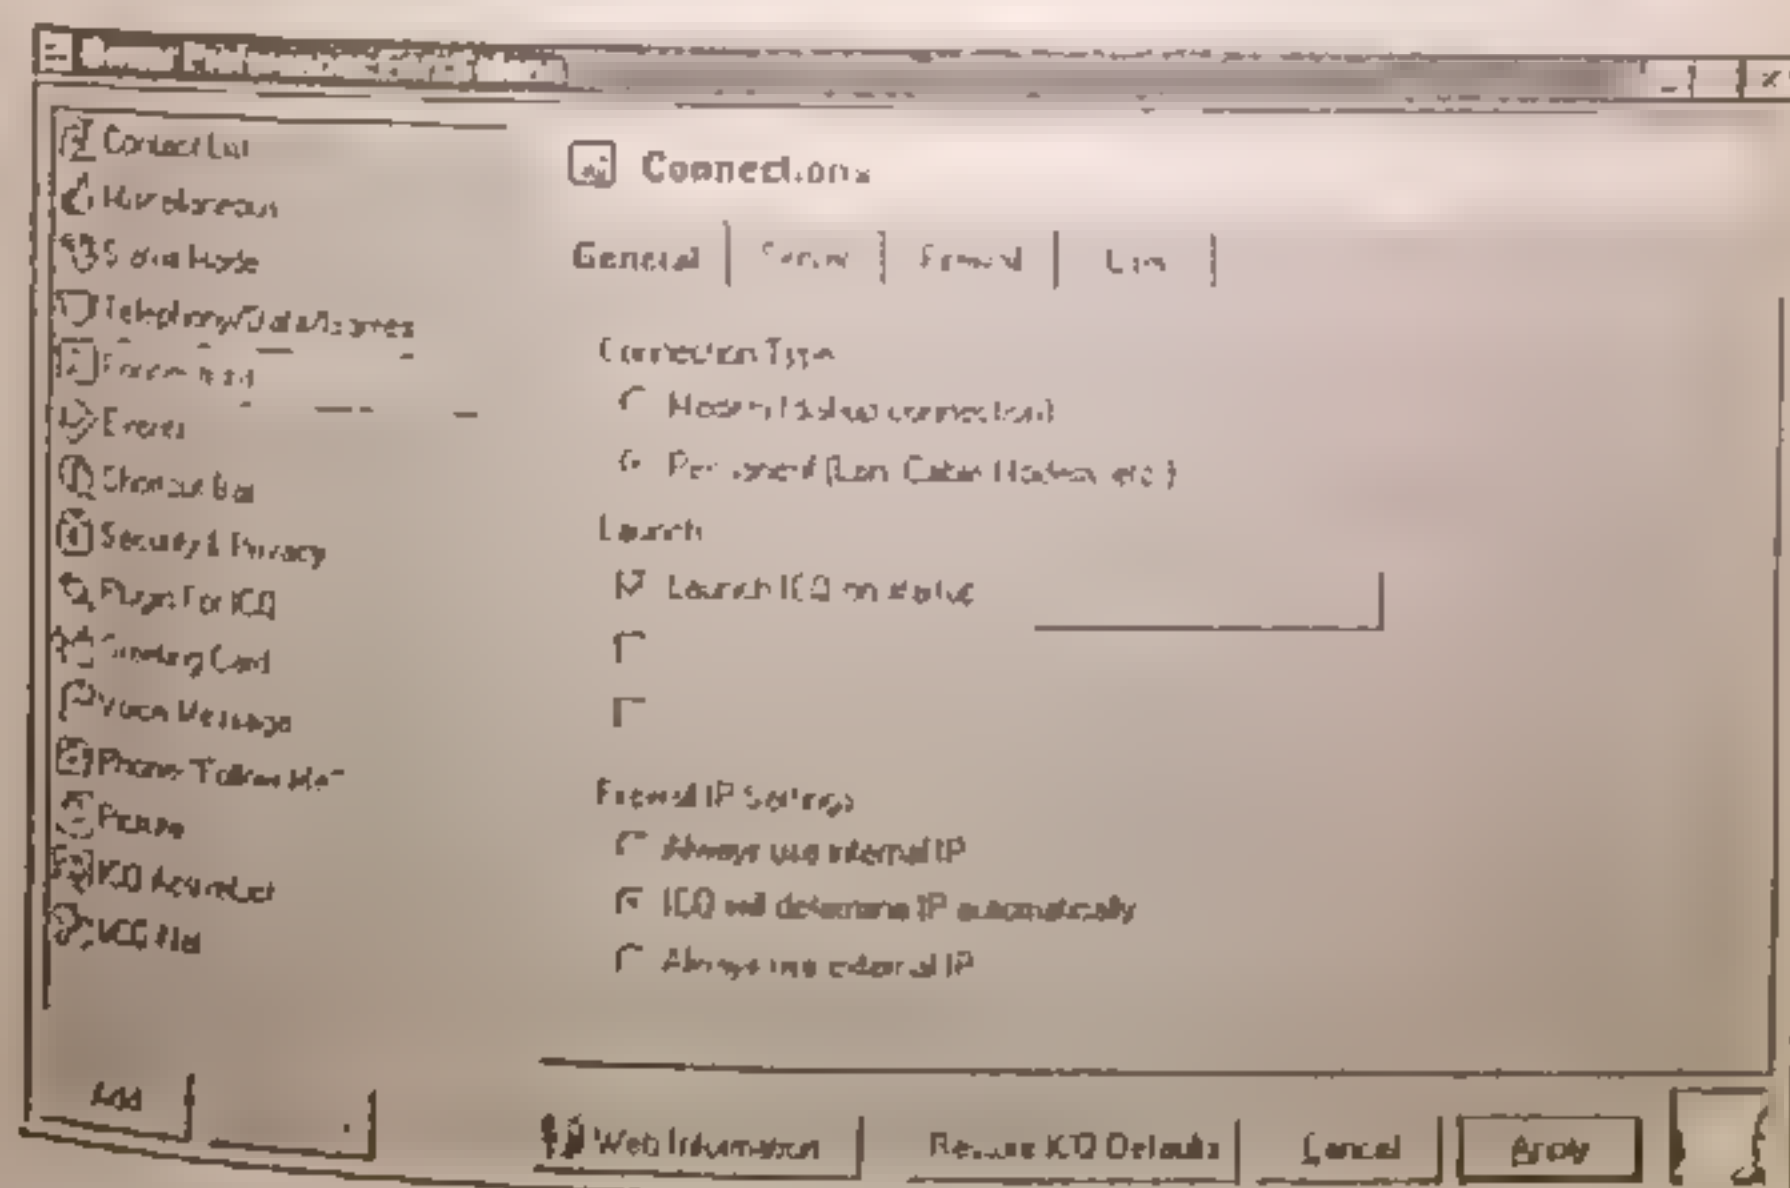 Contact List
Miscellaneous
Status Mode
Telephony/Data/Games
Events
Shortcut Bar
Security & Privacy
Plugin For ICQ
Greeting Card
Voice Message
Phone "Follow Me"
Picture
ICQ
ICQ
Add
Connections
General Server Firewall User
Connection Type
Modem (dialup connection)
Permanent (Lan, Cable Modem, etc.)
Launch
Launch ICQ on startup
Firewall IP Settings
Always use internal IP
ICQ will determine IP automatically
Always use external IP
Web Information
Restore ICQ Defaults
Cancel
Apply